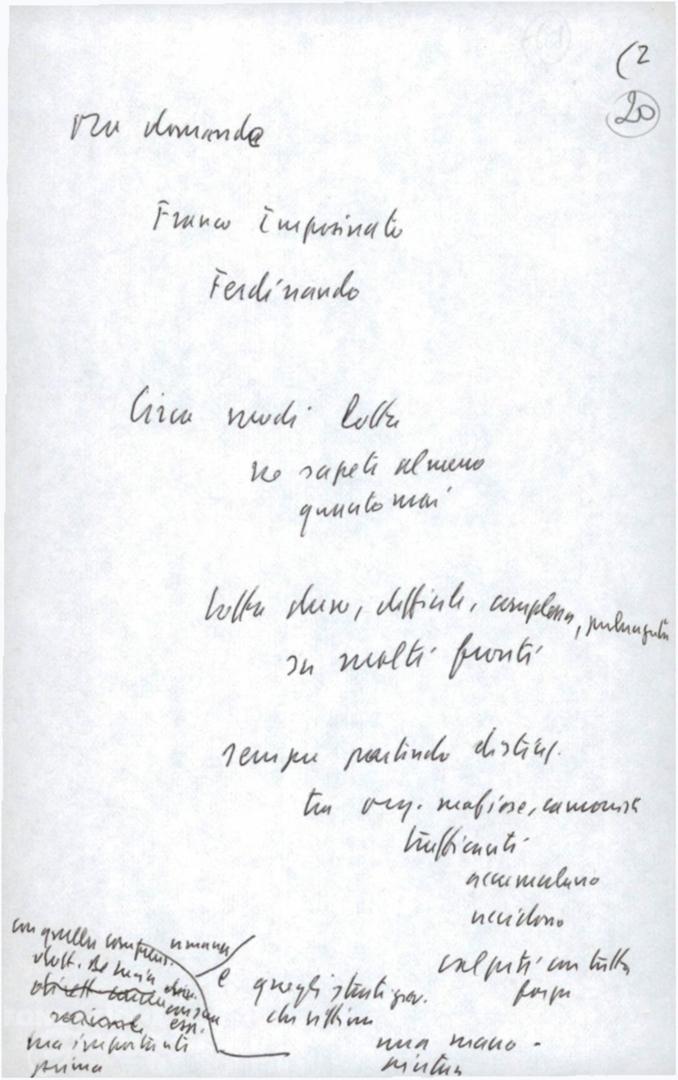 (2
20
una domanda
Franco Imposimato
Ferdinando
Circa modi lotta
ne sapete almeno
quanto mai
lotta dura, difficile, complessa, prolungata
su molti fronti
sempre partendo disting.
tra org. mafiose, camorra
trafficanti
accumulano
uccidono
colpiti con tutta
forza
e quegli strati gov.
che vittime
una mano -
aiutan
con quella compren.
umana
dott. De
ma importanti
prima